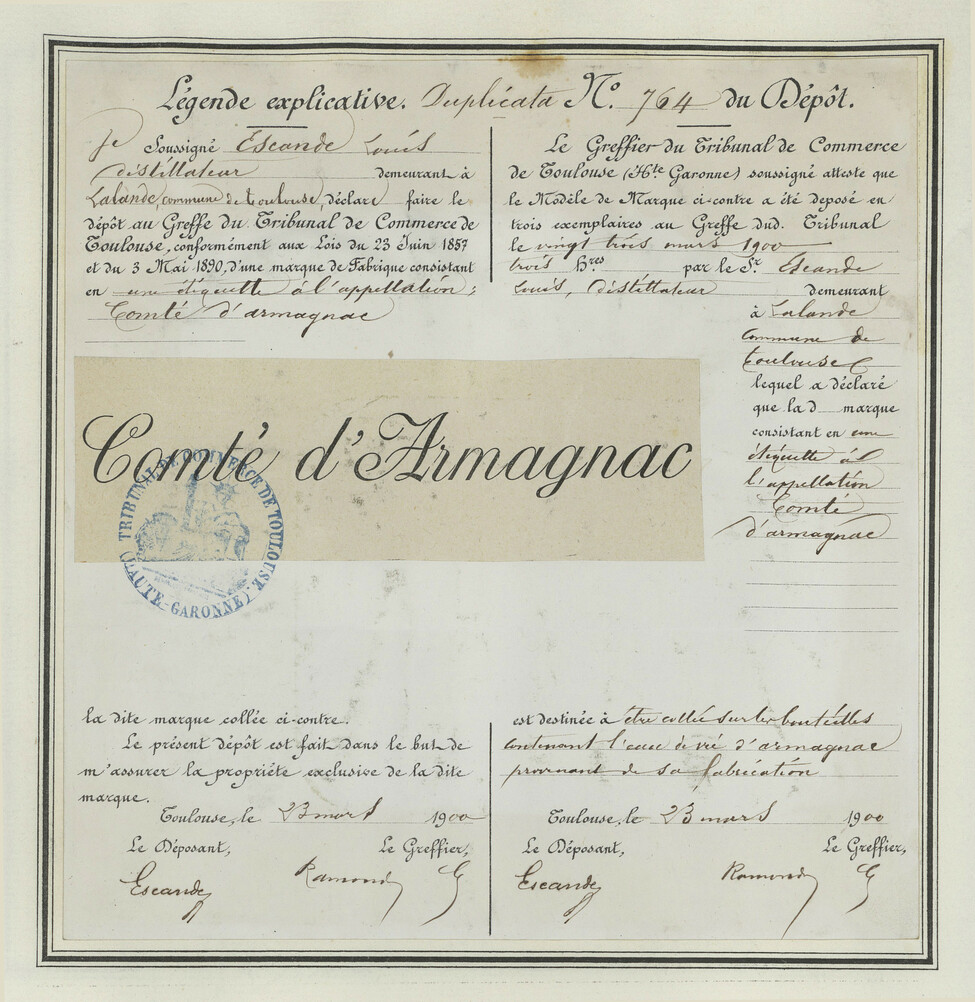 Légende explicative. Duplicata N.º 764 du Dépôt.
Je Soussigné Escande Louis
distillateur demeurant à
Lalande, commune de toulouse, déclare faire le
dépôt au Greffe du Tribunal de Commerce de
Toulouse, conformément aux Lois du 23 Juin 1857
et du 3 Mai 1890, d'une marque de Fabrique consistant
en une étiquette à l'appellation :
Comté d'armagnac
Le Greffier du Tribunal de Commerce
de Toulouse (Hte Garonne) soussigné atteste que
le Modèle de Marque ci-contre a été deposé en
trois exemplaires au Greffe dud. Tribunal
le vingt trois mars 1900
trois Hres par le Sr. Escande
Louis, distillateur demeurant
à Lalande
commune de
toulouse
lequel a déclaré
que la d marque
consistant en une
étiquette à
l'appellation
Comté
d'armagnac
Comté d'Armagnac
TRIBUNAL DE COMMERCE DE TOULOUSE
(HAUTE-GARONNE)
la dite marque collée ci-contre.
Le présent dépôt est fait dans le but de
m'assurer la propriéte exclusive de la dite
marque.
Toulouse, le 23 mars 1900
Le Déposant, Le Greffier,
Escande Ramond
est destinée à être collée sur les bouteilles
contenant l'eau de vie d'armagnac
provenant de sa fabrication
Toulouse, le 23 mars 1900
Le Déposant, Le Greffier,
Escande Ramond